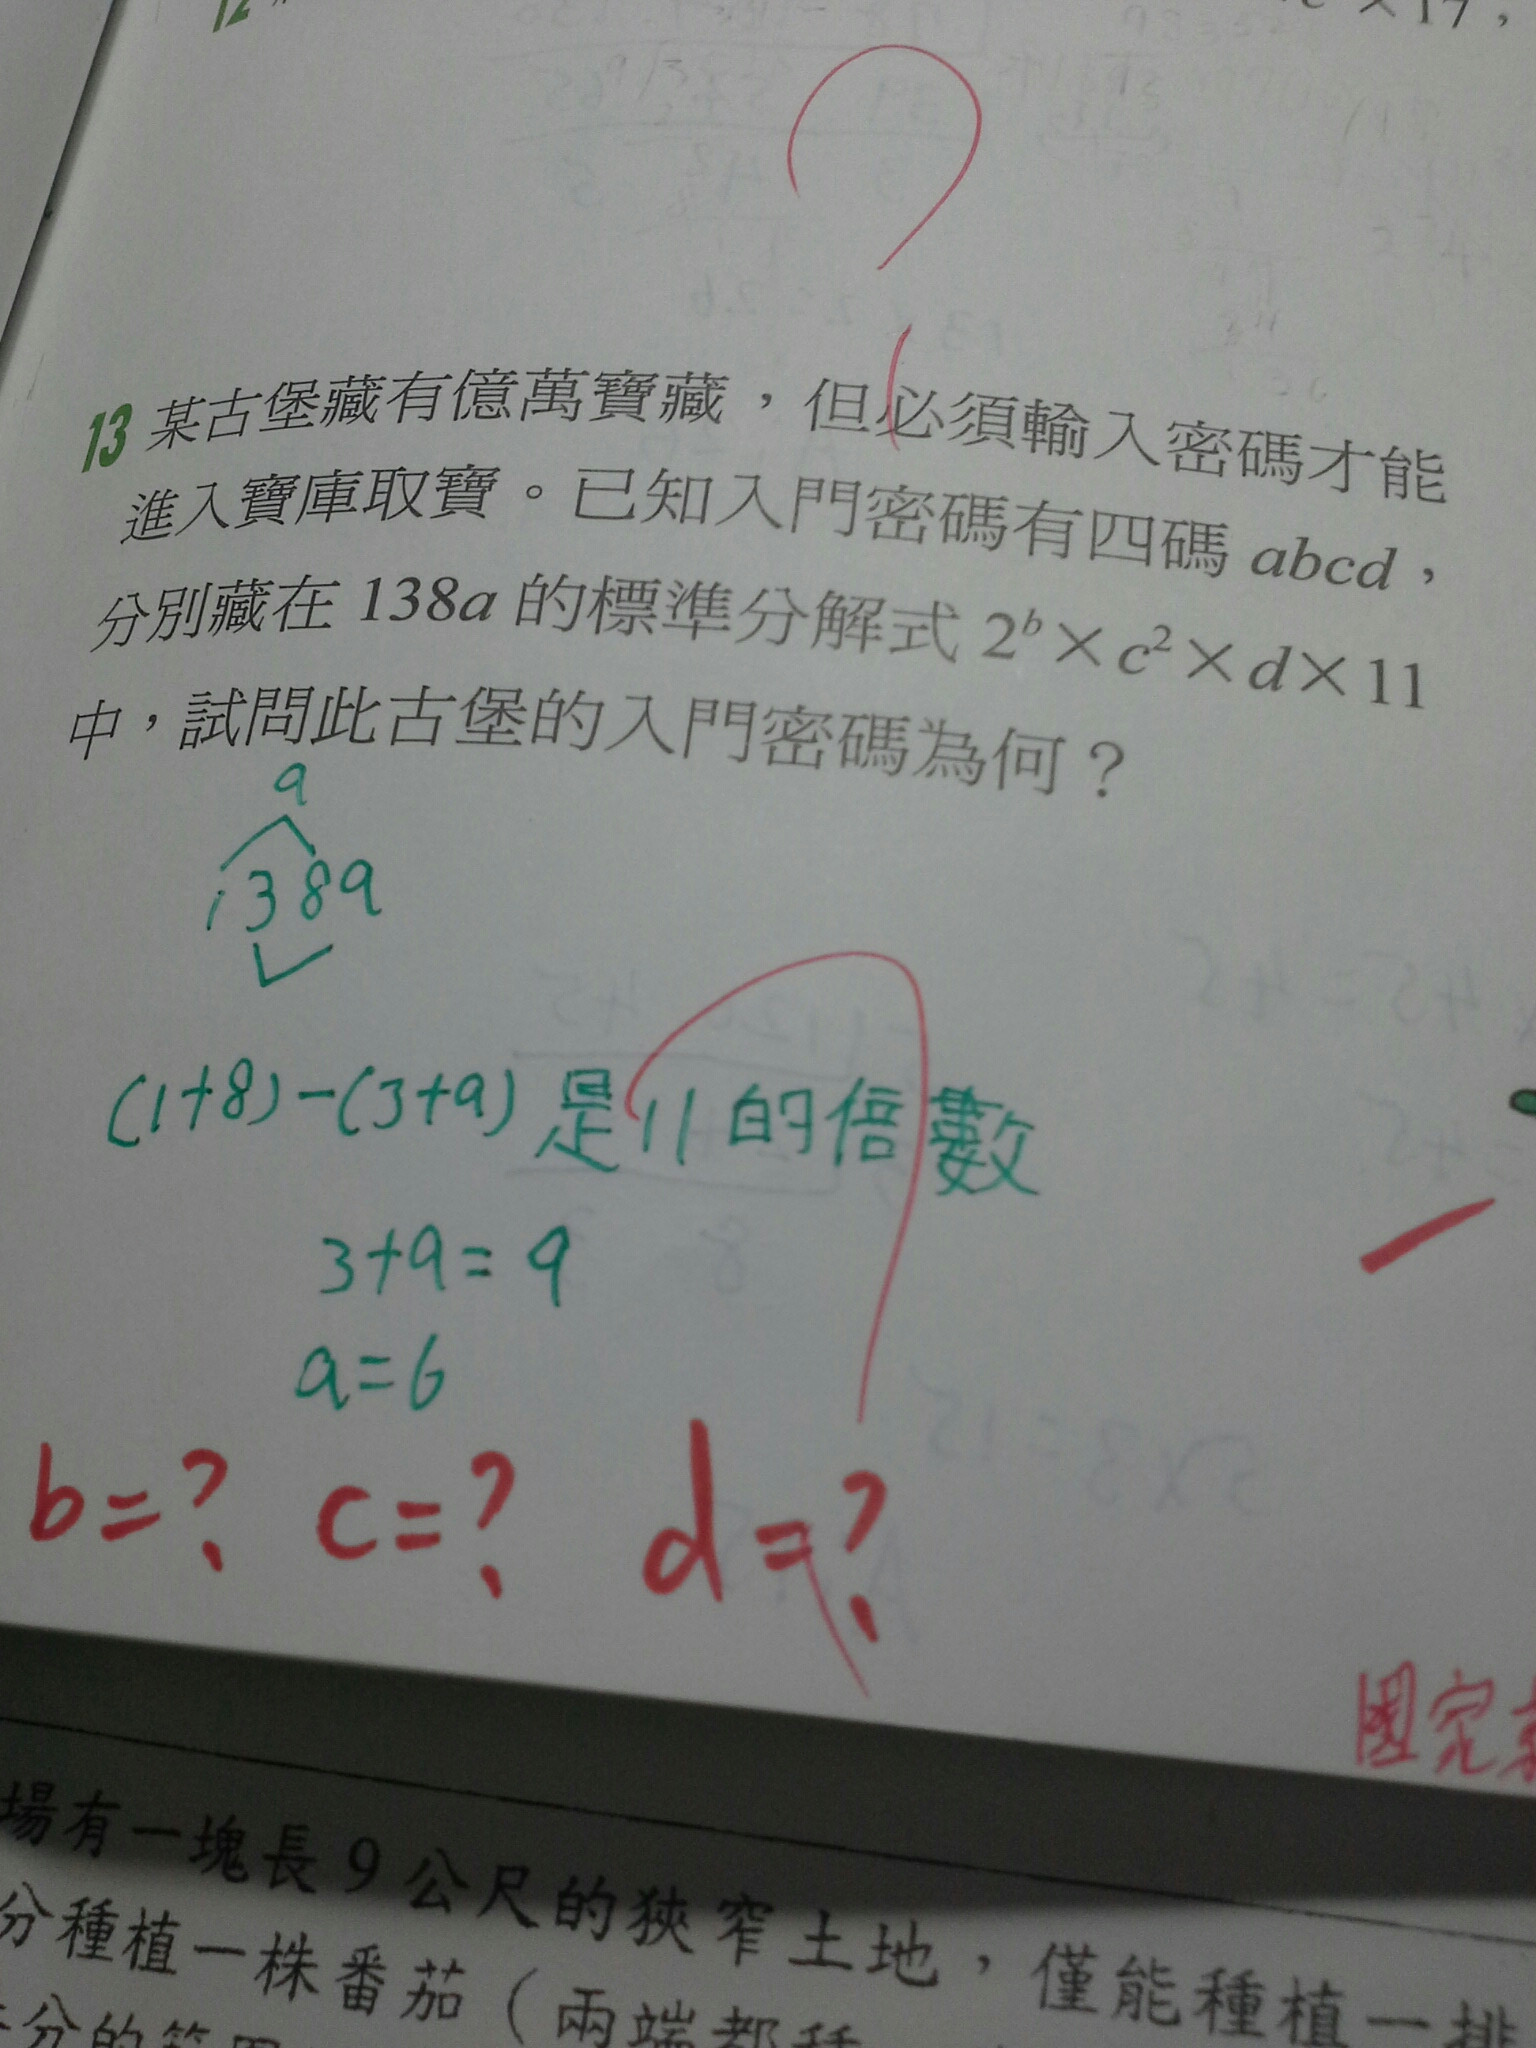 12
×17，
13 某古堡藏有億萬寶藏，但必須輸入密碼才能
進入寶庫取寶。已知入門密碼有四碼 abcd，
分別藏在 138a 的標準分解式 2ᵇ×c²×d×11
中，試問此古堡的入門密碼為何？
a
138a
(1+8)-(3+a) 是11的倍數
3+a=9
a=6
b=? c=? d=?
國完
場有一塊長 9 公尺的狹窄土地，僅能種植一排
分種植一株番茄（兩端都種